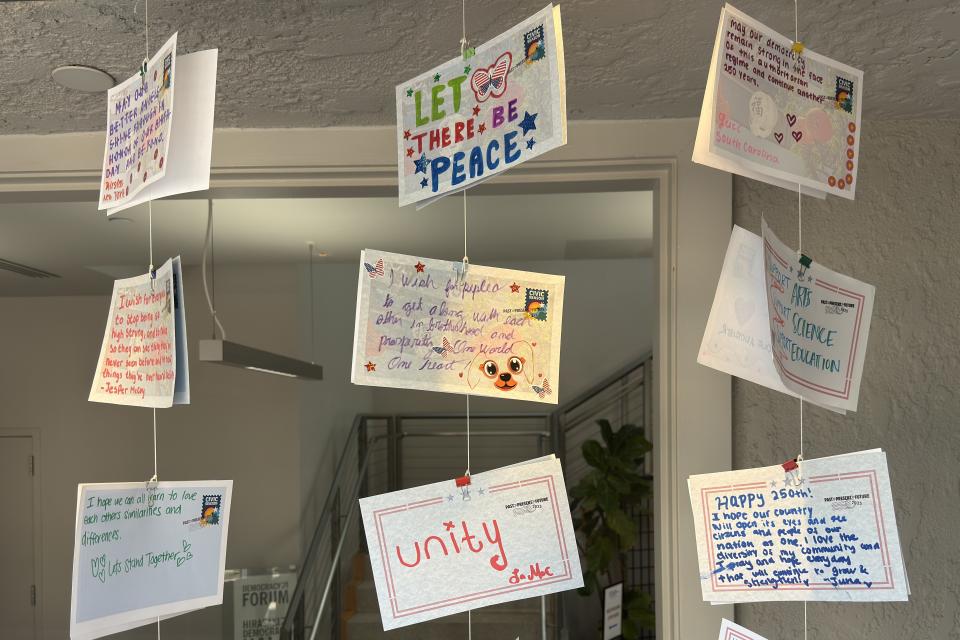 MAY OUR
BETTER ANGELS
SHINE
HONOR OF OUR BIRTH
DAY
New York
CIVIC
SEASON
LET
THERE BE
PEACE
CIVIC
SEASON
May our democracy
remain strong in the face
of this authoritarian
regime and continue another
250 years.
South Carolina
I wish for people
to stop being so
high strung, and
so they can see
never been before and
things they've
-Jesper McCoy
I wish for
to get along with each
other in brotherhood and
prosperity One World
One heart
CIVIC
SEASON
PAST PRESENT FUTURE
ARTS
SCIENCE
EDUCATION
PAST★PRESENT★FUTURE
I hope we can all learn to love
each others similarities and
differences.
Lets Stand Together
CIVIC
SEASON
unity
PAST★PRESENT★FUTURE
Happy 250th!
I hope our country
will open its eyes and see
citizens and people as our
nation as one. I love the
diversity of my community and
I pray and hope everyday
that will continue to grow &
strengthen!
-Juna
PAST★PRESENT★FUTURE
DEMOCRACY
FORUM